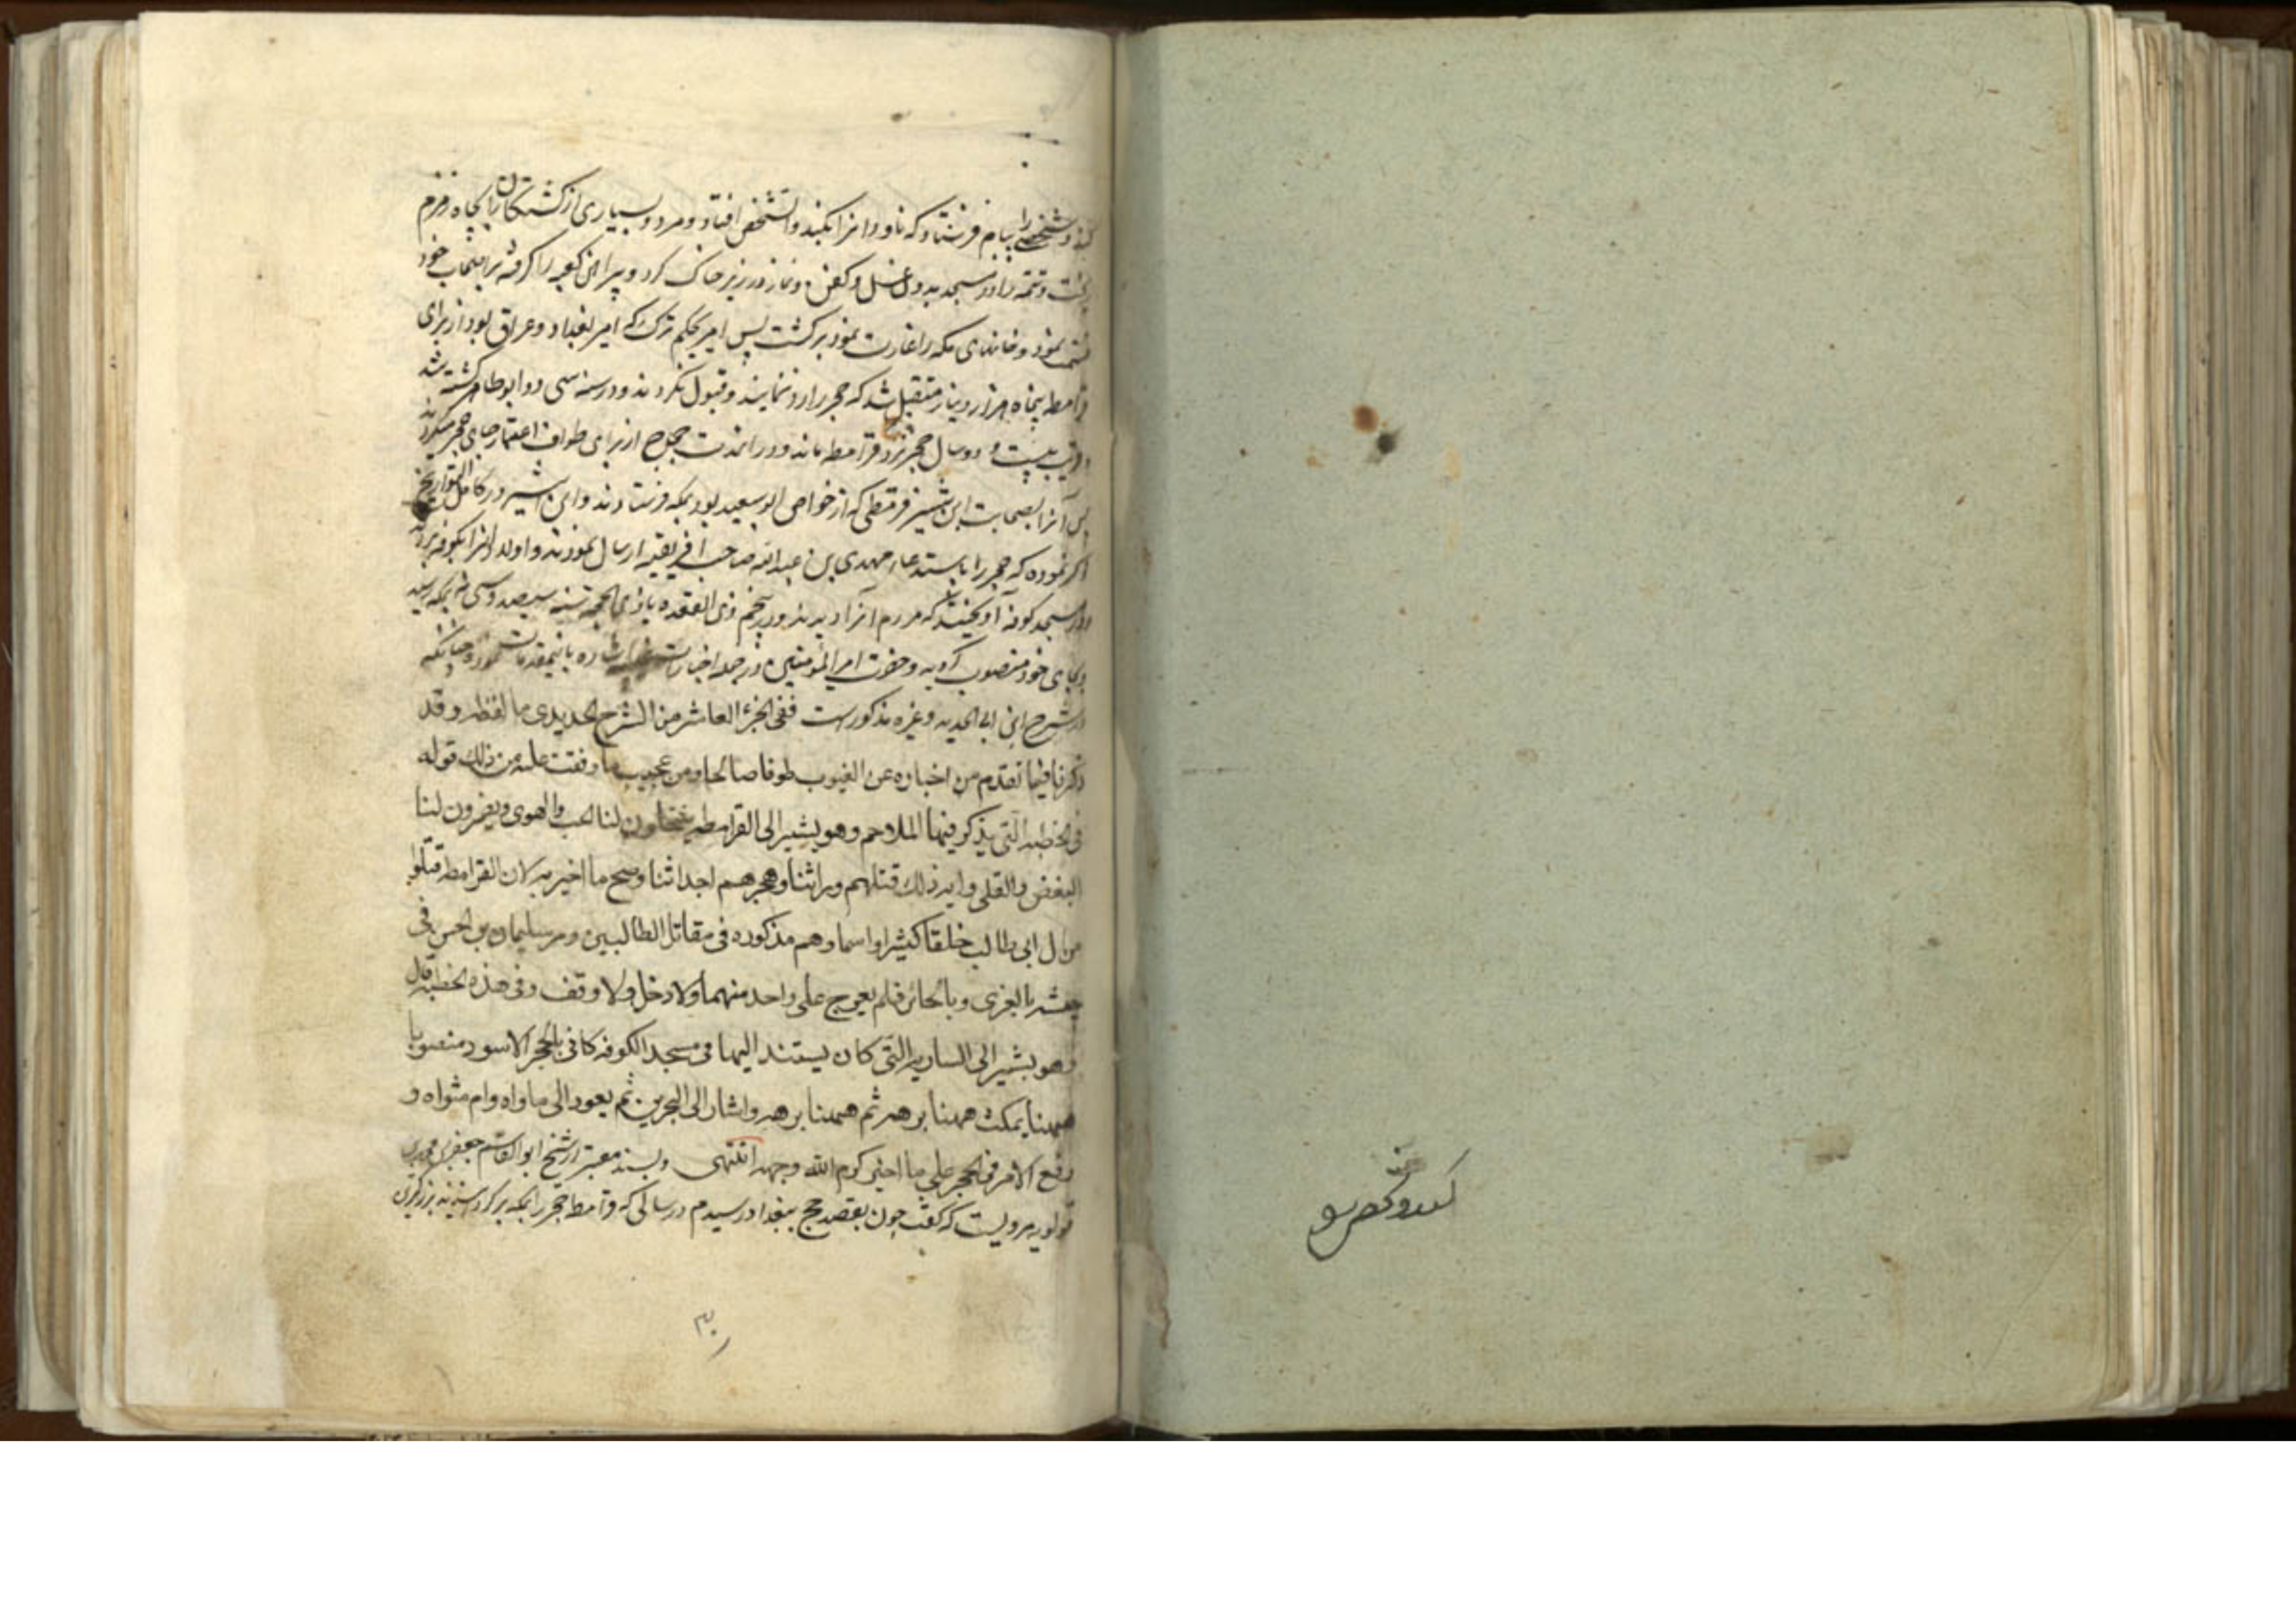 کند و شخصی را ببام فرستاد که ناودانرا بکند و آنشخص افتاد و مرد و بسیاری از کشتکان را بچاه زمزم
ریخت و تتمه را در مسجد بدون غسل و کفن و نماز در زیر خاک کرد و پیراهن کعبه را کرفته بر اصحاب خود
قسمت نمود و خانهای مکه را غارت نمود برکشت پس امیر بجکم ترک که امیر بغداد و عراق بود از برای
قرامطه پنجاه هزار دینار متقبل شد که حجر را رد نمایند و قبول نکردند و در سنه سی دو ابوطاهر کشته شد
و قریب بیست و دو سال حجر نزد قرامطه ماند و در انمدت حجاج از برای طواف اعتماد جای حجر میکردند
پس آنرا بصحابت ابن شنبر قرمطی که از خواص ابوسعید بود بمکه فرستادند و ابن اثیر در کامل التواریخ
ذکر نموده که حجر را باستدعاء مهدی بن عبدالله صاحب افریقیه ارسال نمودند و اولا انرا بکوفه بردند
و در مسجد کوفه آویختند که مردم آنرا دیدند و در پنجم ذی القعده یا ذی الحجه سنه سیصد و سی نه بمکه رسید
و بجای خود منصوب کردید و حضرت امیر المؤمنین در جمله اخبار اشاره باینمقدمات نموده چنانکه
در شرح ابن ابی الحدید و غیره مذکور است ففی الجزء العاشر من الشرح الحدیدی ما لفظه و قد
ذکرنا فیما تقدم من اخباره عن الغیوب طرفا صالحا و من عجیب ما وقفت علیه من ذلک قوله
فی الخطبه التی یذکر فیها الملاحم و هو یشیر الی القرامطه ینتحلون لنا الحب و الهوی و یضمرون لنا
البغض و القلی و ایه ذلک قتلهم وراثنا و هجرهم احداثنا و صح ما اخبر به لان القرامطه قتلوا
من ال ابی طالب خلقا کثیرا و اسماوهم مذکوره فی مقاتل الطالبیین و مر سلیمان بن الحسن فی
جیشه بالغری و بالحائر فلم یعرج علی واحد منهما و لا دخل و لا وقف و فی هذه الخطبه قال
و هو یشیر الی الساریه التی کان یستند الیها فی مسجد الکوفه کانی بالحجر الاسود منصوبا
ههنا یمکث ههنا برهه ثم ههنا برهه و اشار الی البحرین ثم یعود الی ماواه و ام مثواه و
وقع الامر فی الحجر علی ما اخبر کرم الله وجهه انتهی و بسند معتبر از شیخ ابوالقاسم جعفر بن محمد بن
قولویه مرویست که کفت چون بقصد حج ببغداد رسیدم در سالی که قرامطه حجر را بمکه بر کردانیدند بزرکترین